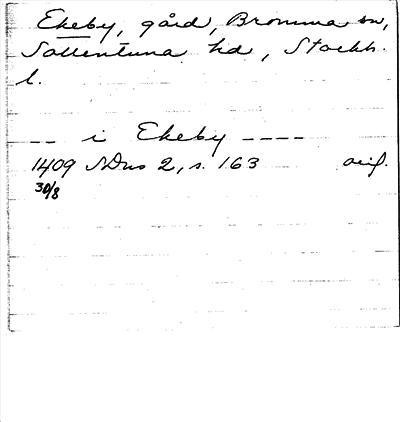 Ekeby, gård, Bromma sn,
Sollentuna hd, Stockh.
l.
-- i Ekeby ----
1409 SDns 2, s. 163 orig.
30/8